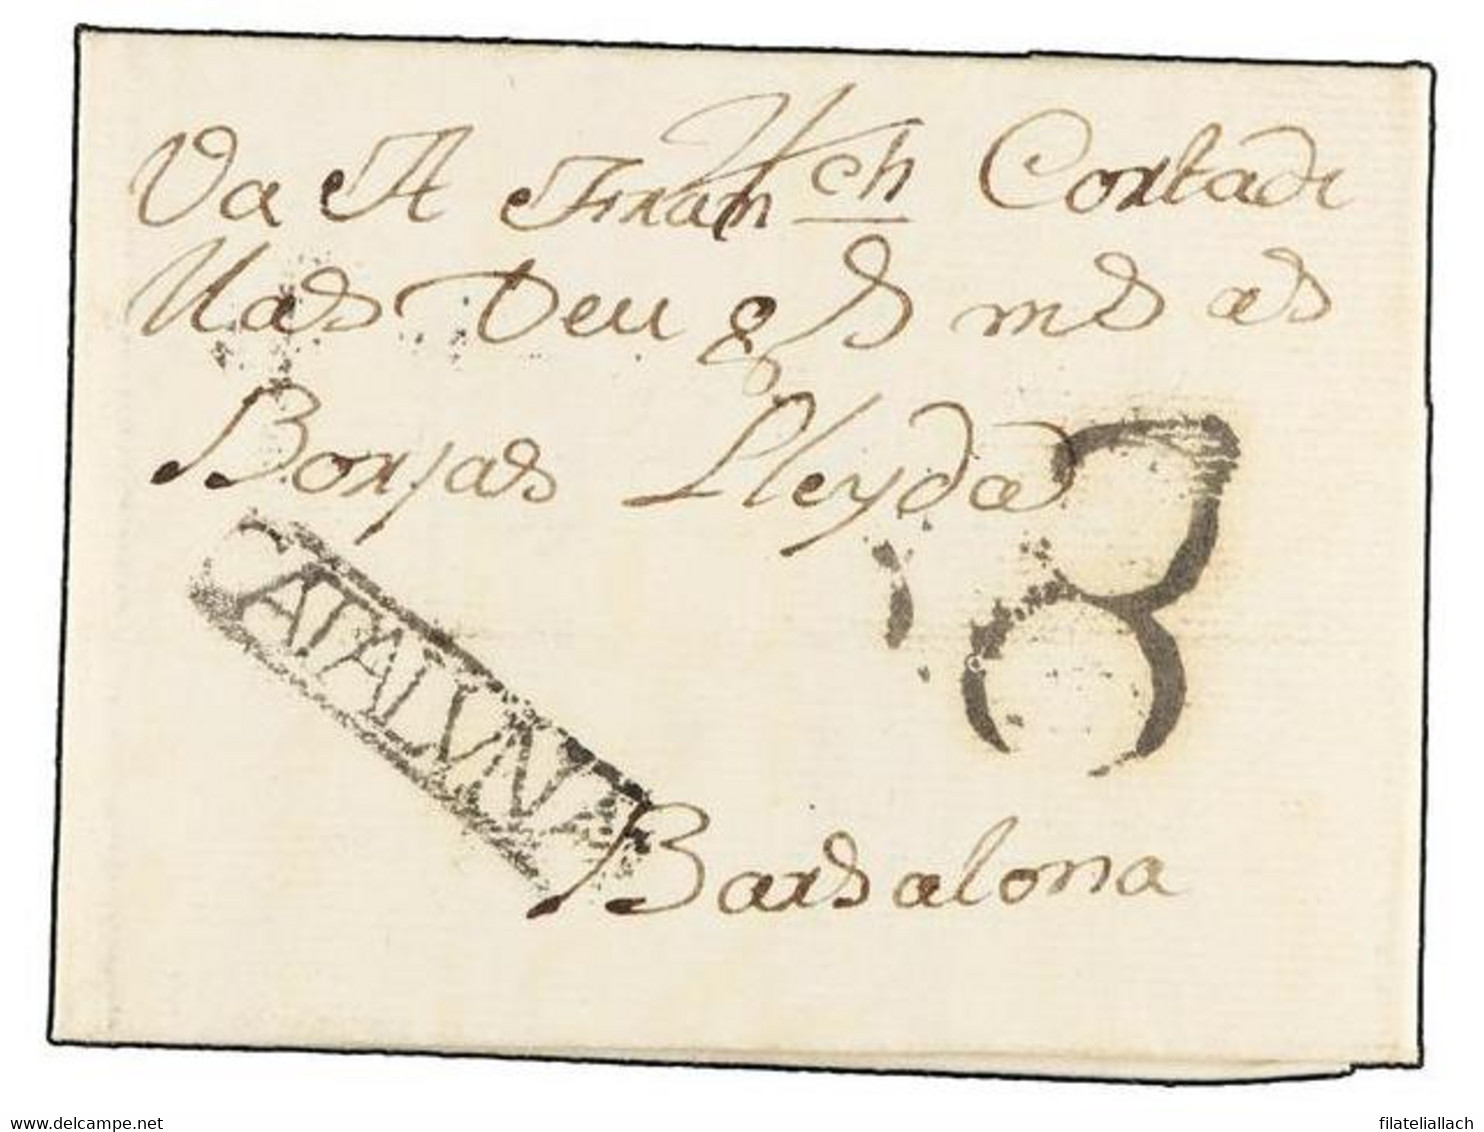 Va A Franch Cortade
Mas Deu g S mS as
Borjas Lleyda
8
CATALVÑA
Barsalona
www.delcampe.net
filateliallach